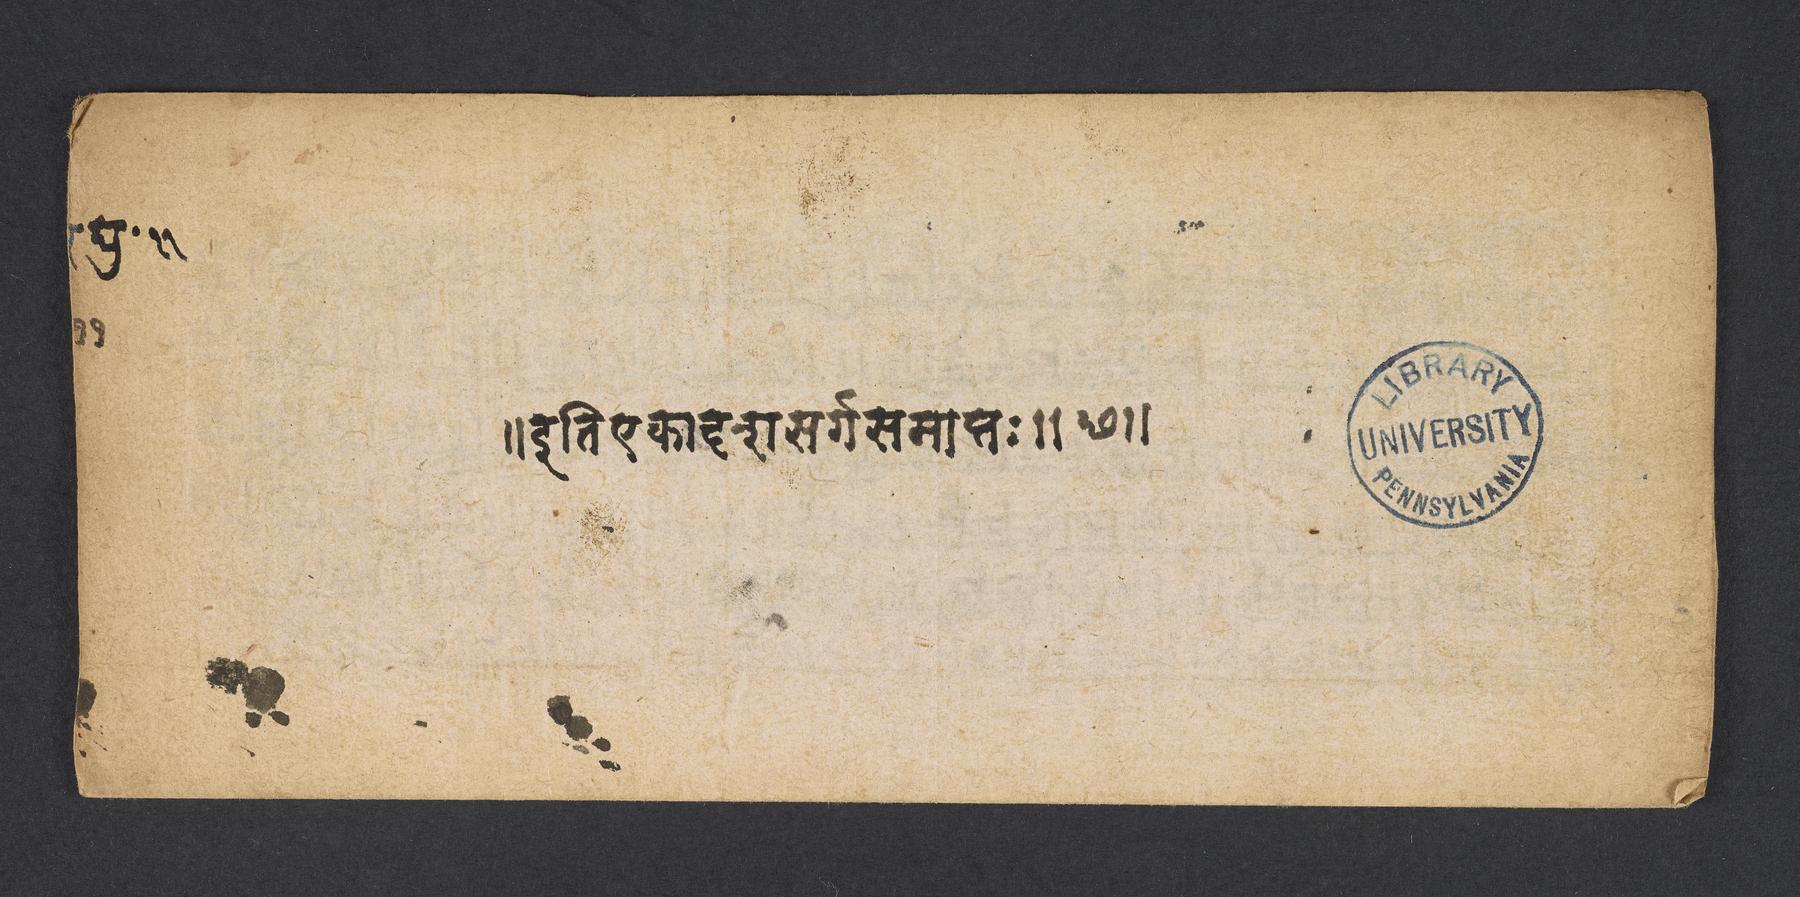 घु॰ ॥
११
॥इति एकादशसर्गसमाप्तः॥ छ॥
LIBRARY
UNIVERSITY
PENNSYLVANIA